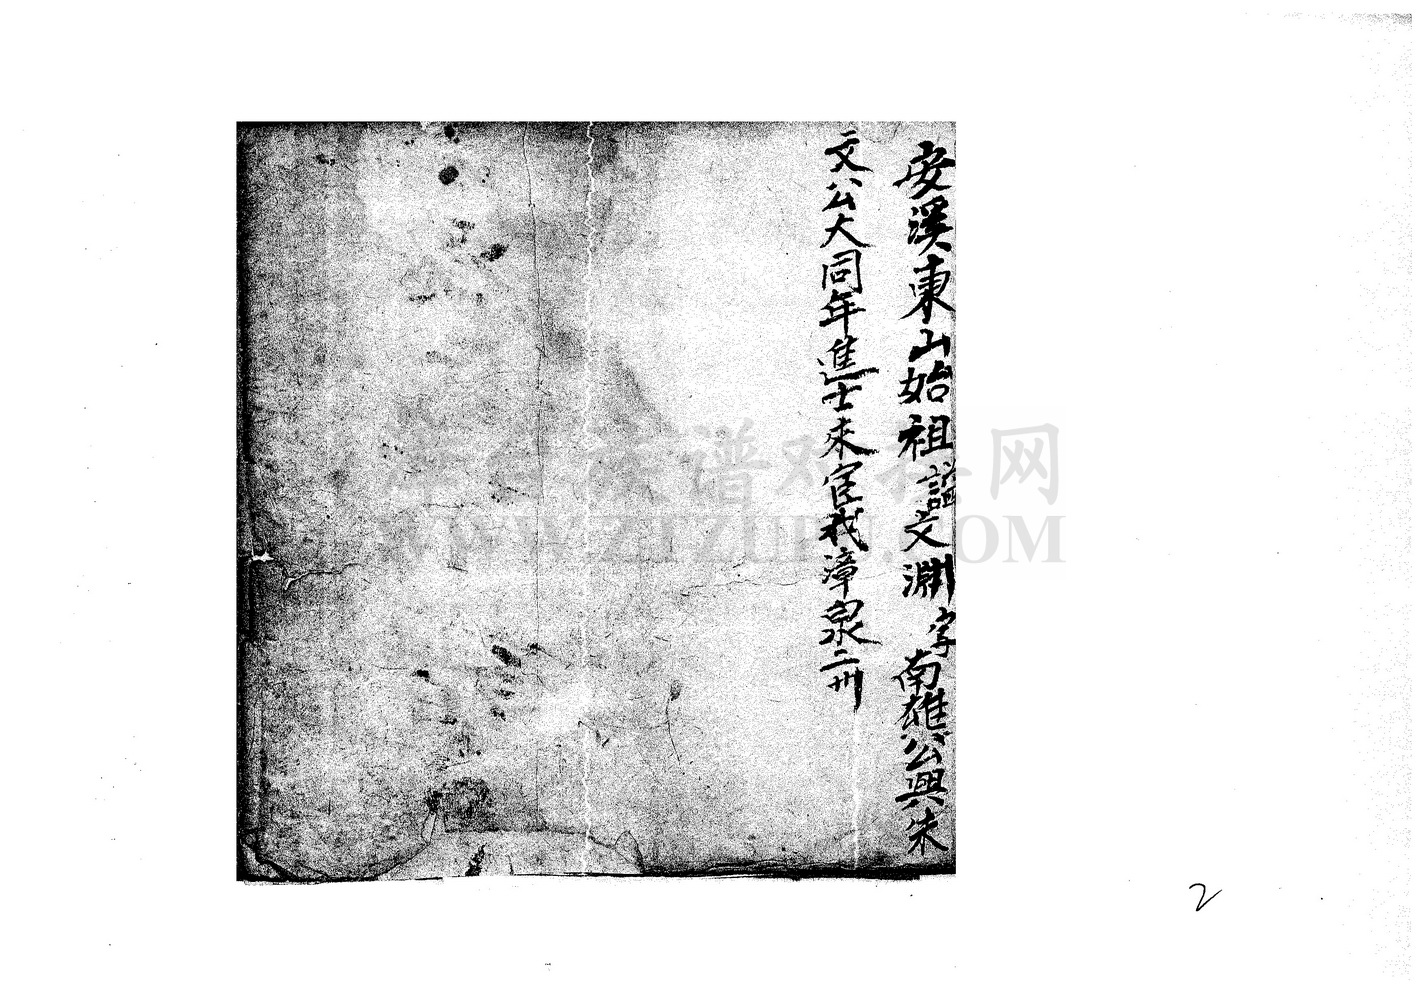 安溪東山始祖諡文淵字南雄公興朱
文公大同年進士來宦我漳泉二州
族谱 网
WWW.ZTZUPU.COM
2